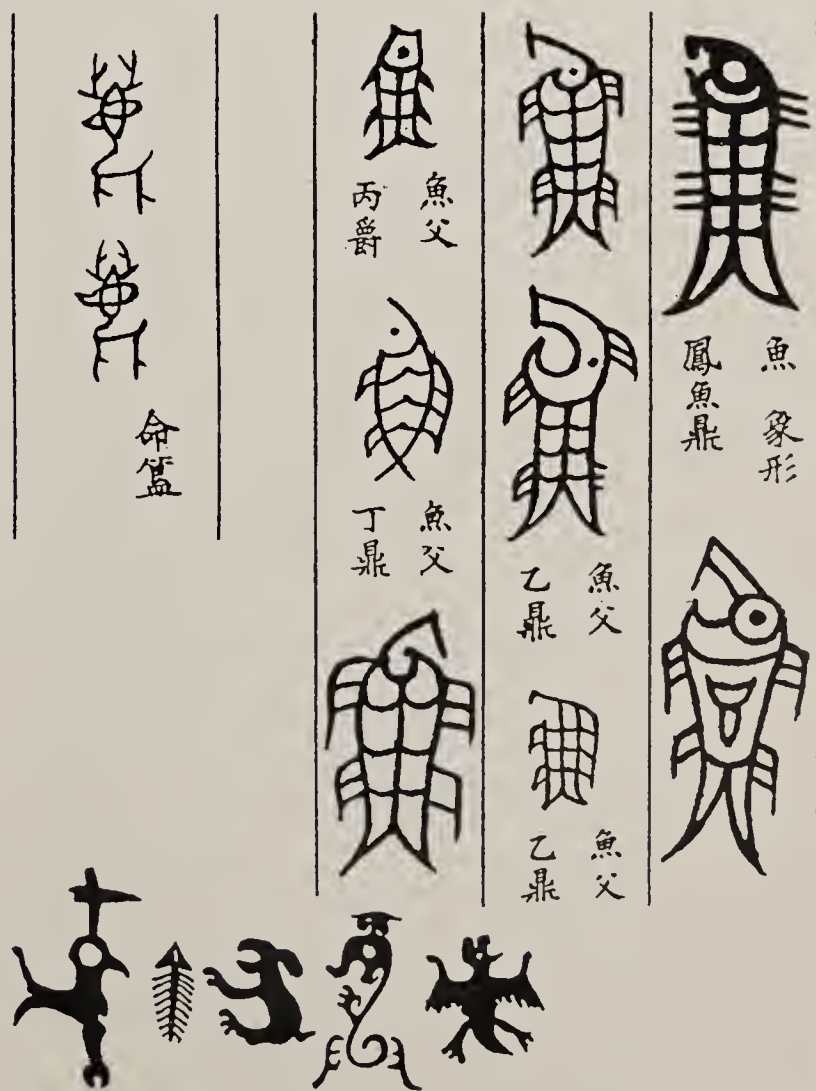 魚 象形
鳳魚鼎
魚父
乙鼎
魚父
乙鼎
魚父
丙爵
魚父
丁鼎
命簋